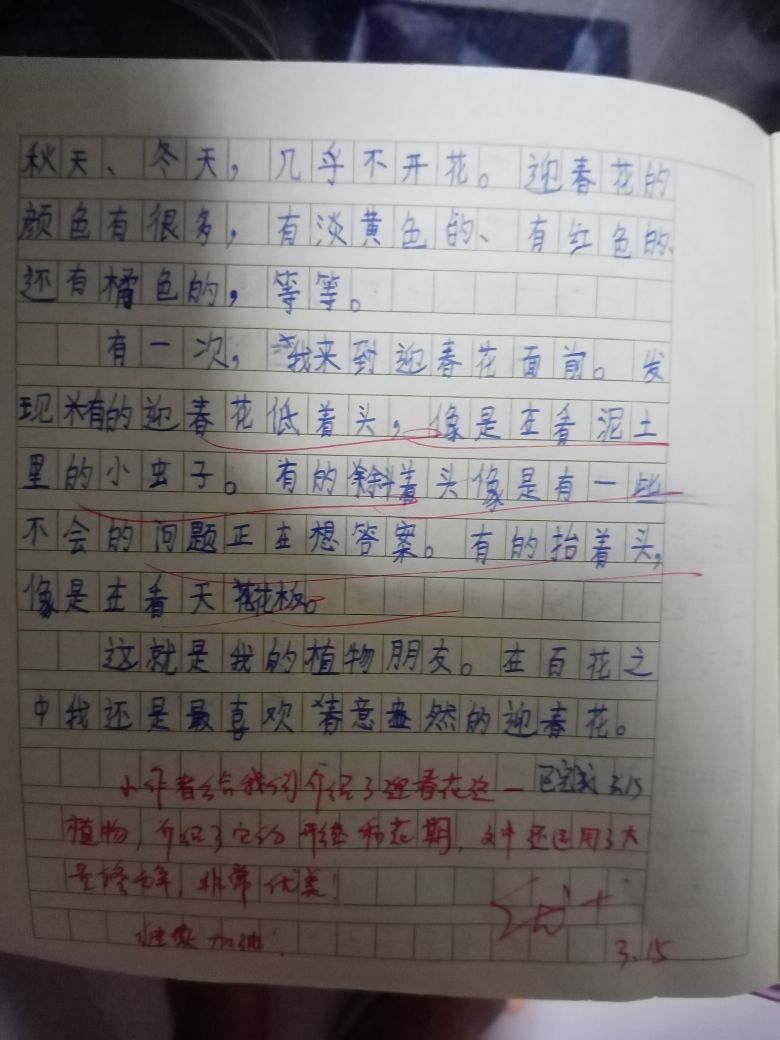 秋天、冬天，几乎不开花。迎春花的
颜色有很多，有淡黄色的、有红色的、
还有橘色的，等等。
有一次，我来到迎春花面前。发
现有的迎春花低着头，像是在看泥土
里的小虫子。有的斜着头像是有一些
不会的问题正在想答案。有的抬着头，
像是在看天花板。
这就是我的植物朋友。在百花之
中我还是最喜欢春意盎然的迎春花。
已完成 3.15
小作者给我们介绍了迎春花这一
植物，介绍了它的形态和花期，文中还运用了大
量修辞，非常优美！
继续加油！
3.15